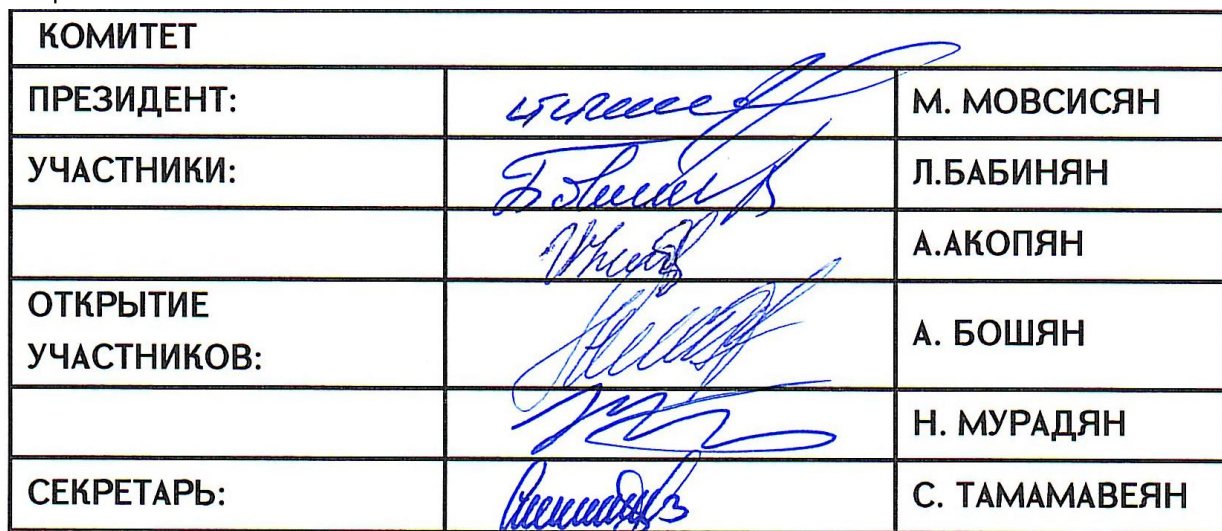 КОМИТЕТ
ПРЕЗИДЕНТ: М. МОВСИСЯН
УЧАСТНИКИ: Л.БАБИНЯН
А.АКОПЯН
ОТКРЫТИЕ
УЧАСТНИКОВ: А. БОШЯН
Н. МУРАДЯН
СЕКРЕТАРЬ: С. ТАМАМАВЕЯН